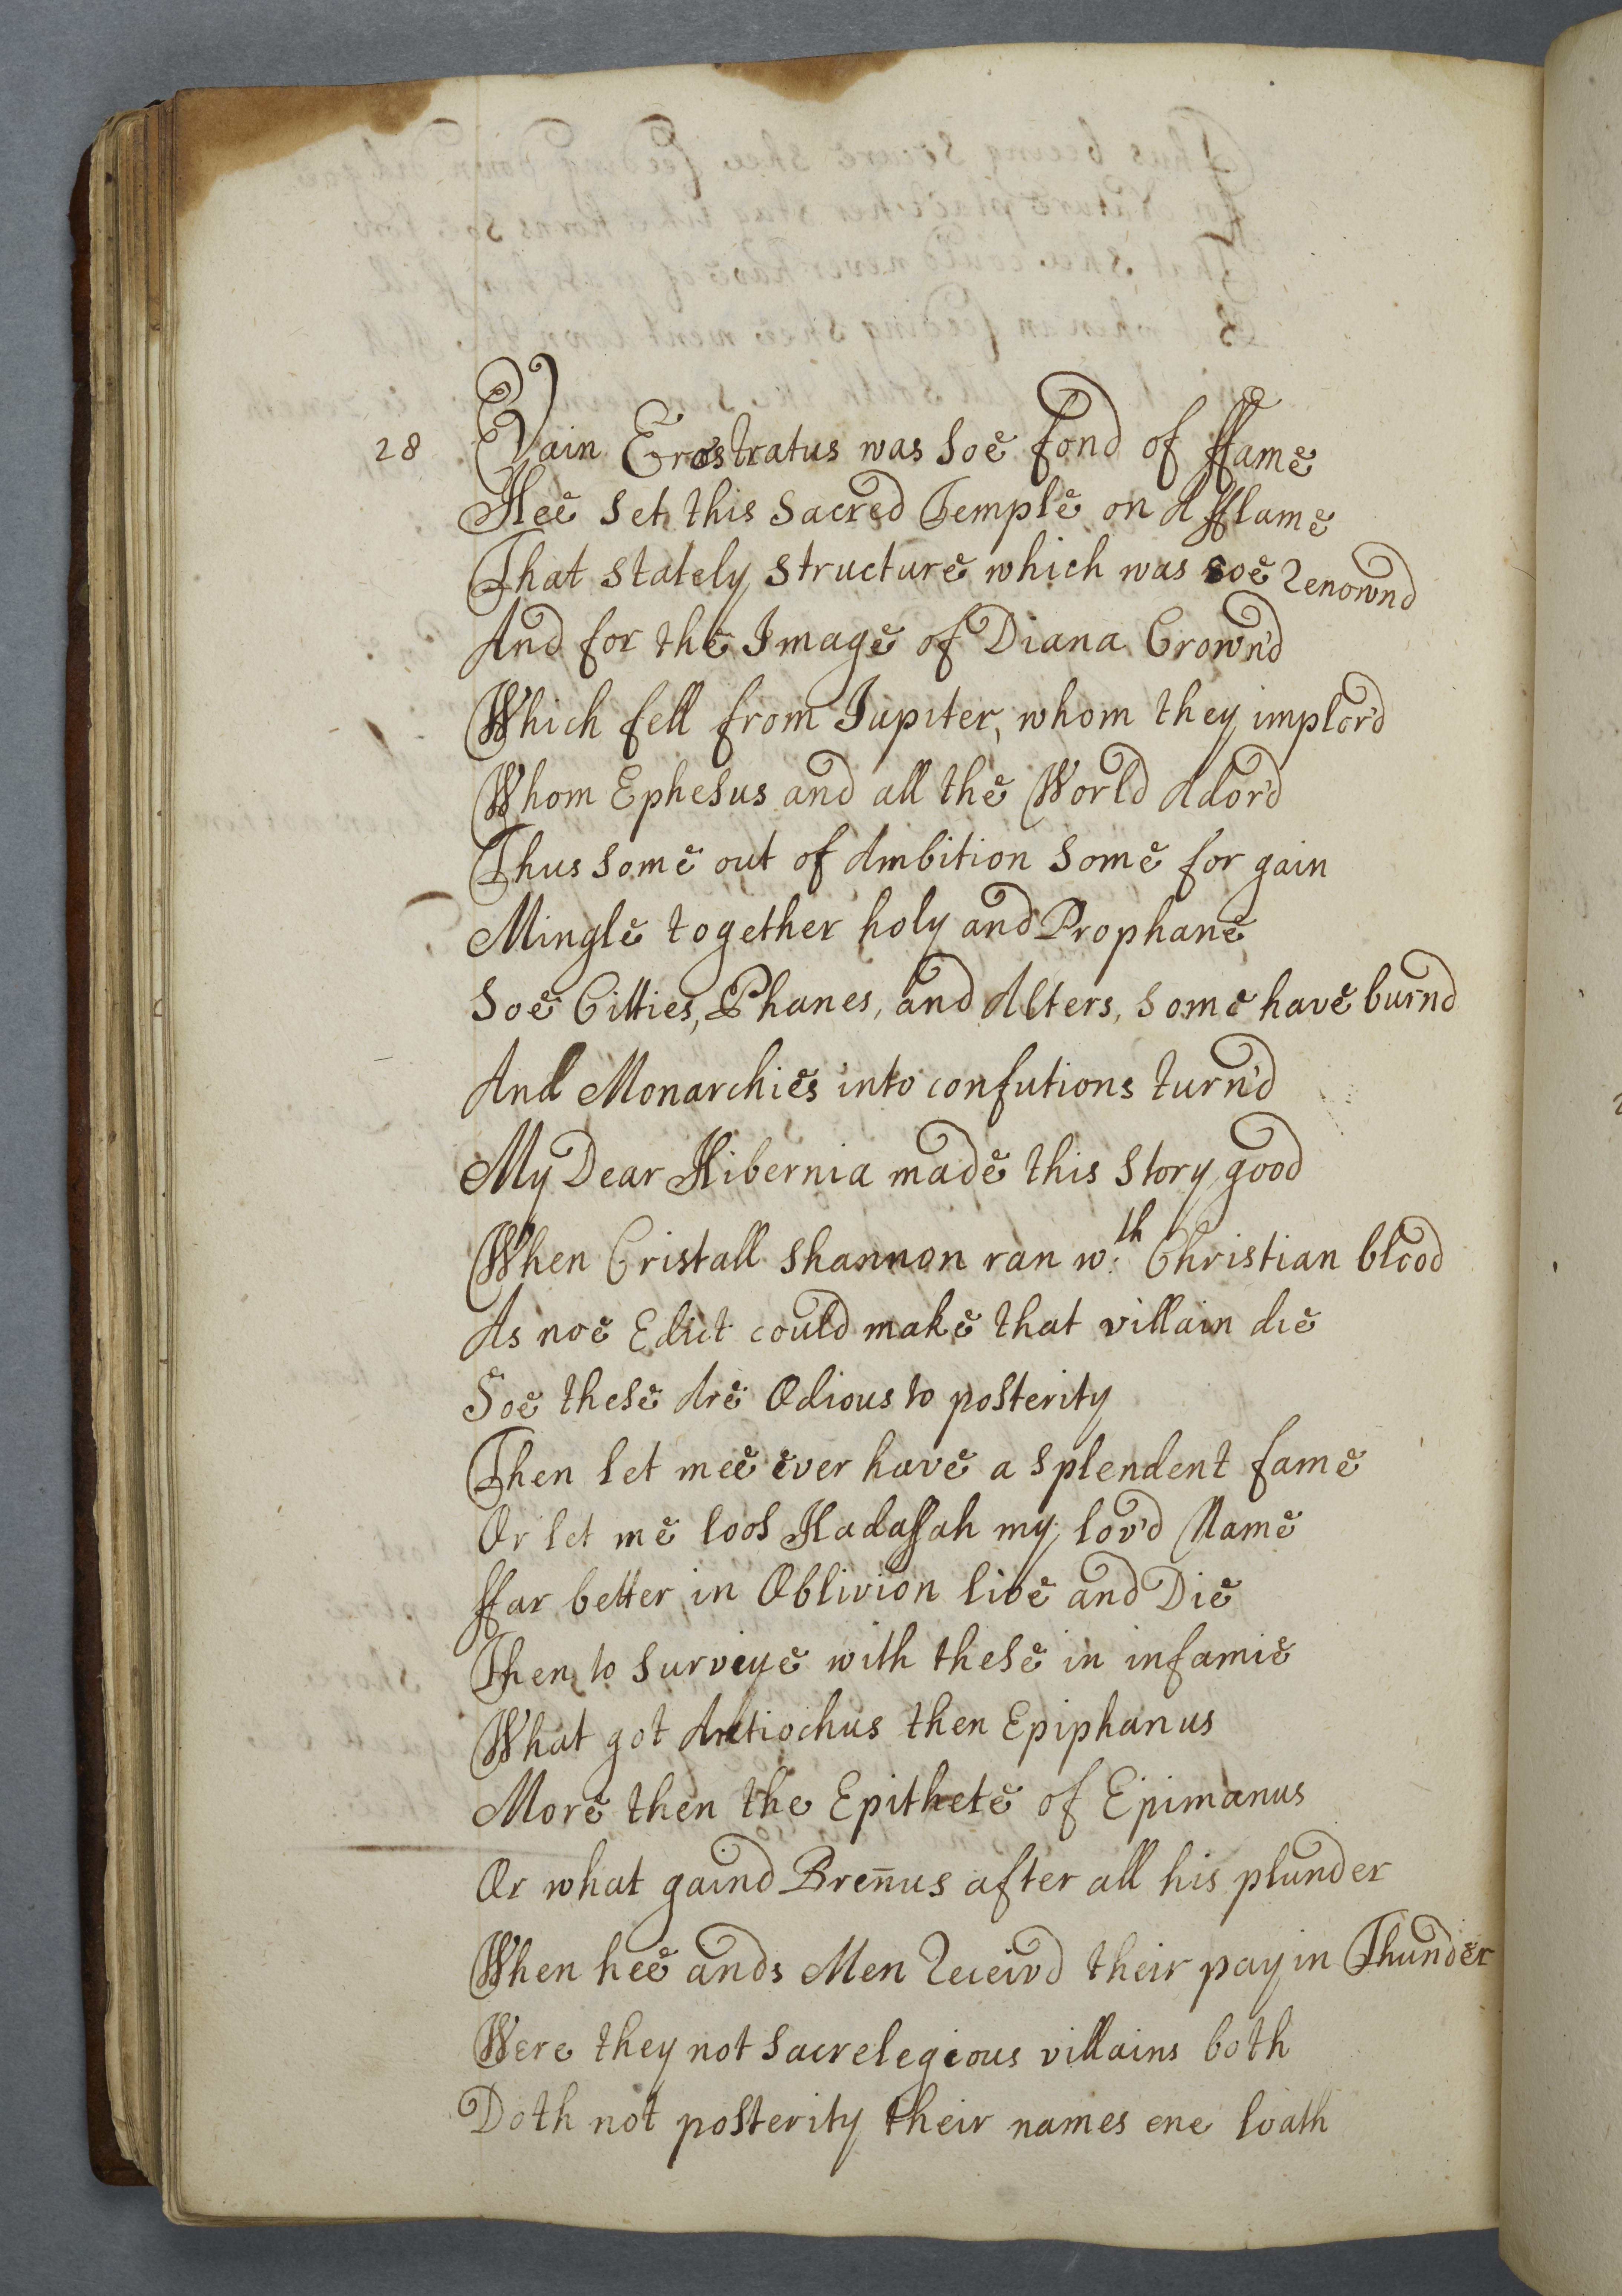 28 Vain Erostratus was soe fond of ffame
Hee set this sacred Temple on A fflame
That stately structure which was soe Renownd
And for the Image of Diana Crown'd
Which fell from Iupiter, whom they implor'd
Whom Ephesus and all the World Ador'd
Thus some out of Ambition some for gain
Mingle together holy and Prophane
Soe Citties, Phanes, and Alters, some have burnd
And Monarchies into confutions turn'd
My Dear Hibernia made this story good
When Cristall Shannon ran wth Christian blood
As noe Edict could make that villain die
Soe these Are Odious to posterity
Then let mee ever have a splendent fame
Or let me loos Hadassah my lov'd Name
ffar better in Oblivion live and Die
Then to surveive with these in infamie
What got Antiochus then Epiphanus
More then the Epithete of Epimanus
Or what gaind Breñus after all his plunder
When hee ands Men Receivd their pay in Thunder
Were they not sacrelegious villains both
Doth not posterity their names ene loath